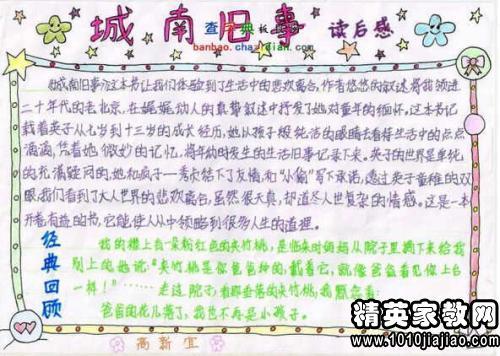 城南旧事 读后感
查字典板报网
banbao.chazidian.com
《城南旧事》这本书让我们体验到了生活中的悲欢离合,作者悠悠的叙述将我领进
二十年代的老北京,在娓娓动人的真挚叙述中抒发了她对童年的缅怀。这本书记
载着英子从七岁到十三岁的成长经历,她从孩子般纯洁的眼睛去看待生活中的点点
滴滴,凭着她微妙的记忆,将年幼时发生的生活旧事记录下来。英子的世界是单纯
的充满疑问的,她和疯子——秀贞结下了友情和“小偷”写下承诺,透过英子童稚的双
眼,我们看到了大人世界的悲欢离合,虽然很天真,却道尽人世复杂的情感。这是一本
开卷有益的书,它能使人从中领略到很多人生的道理。
经典回顾
我的襟上有一朵粉红色的夹竹桃,是临来时妈妈从院子里摘下来给我
别上的,她说:“夹竹桃是你爸爸种的,戴着它,就像爸爸看见你上台
一样!”……走过院子,看那垂落的夹竹桃,我默念着:
爸爸的花儿落了,我也不再是小孩子。
高新宜
精英家教网
www.1010jiajiao.com